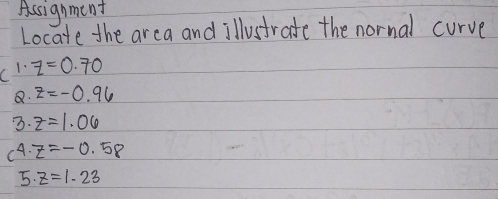 Assignment
Locate the area and illustrate the normal curve
1. z=0.70
2. z=-0.96
3. z=1.06
4. z=-0.58
5. z=1.23